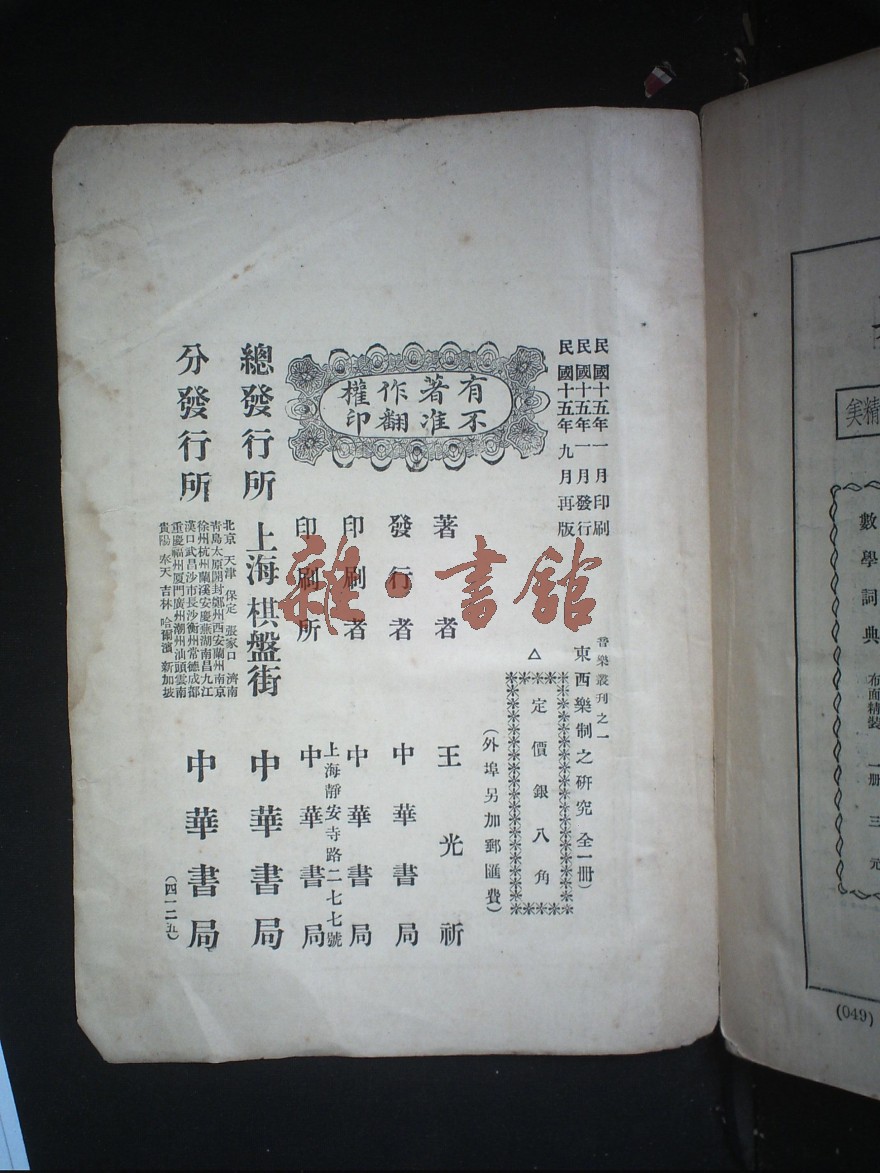 民國十五年一月印刷
民國十五年一月發行
民國十五年九月再版
音樂叢刊之一
東西樂制之研究 全一冊
△
定價銀八角
(外埠另加郵匯費)
有著作權
不准翻印
著者 王光祈
發行者 中華書局
印刷者 中華書局
上海靜安寺路二七七號
印刷所 中華書局
總發行所 上海棋盤街 中華書局
分發行所
北京 天津 保定 張家口 濟南
青島 太原 開封 鄭州 西安 蘭州 南京
徐州 杭州 蘭溪 安慶 蕪湖 南昌 九江
漢口 武昌 沙市 長沙 衡州 常德 成都
重慶 福州 厦門 廣州 潮州 汕頭 雲南
貴陽 奉天 吉林 哈爾濱 新加坡
中華書局
(四一二五)
雜·書館
數學詞典
布面精裝 一册 三元
(049)